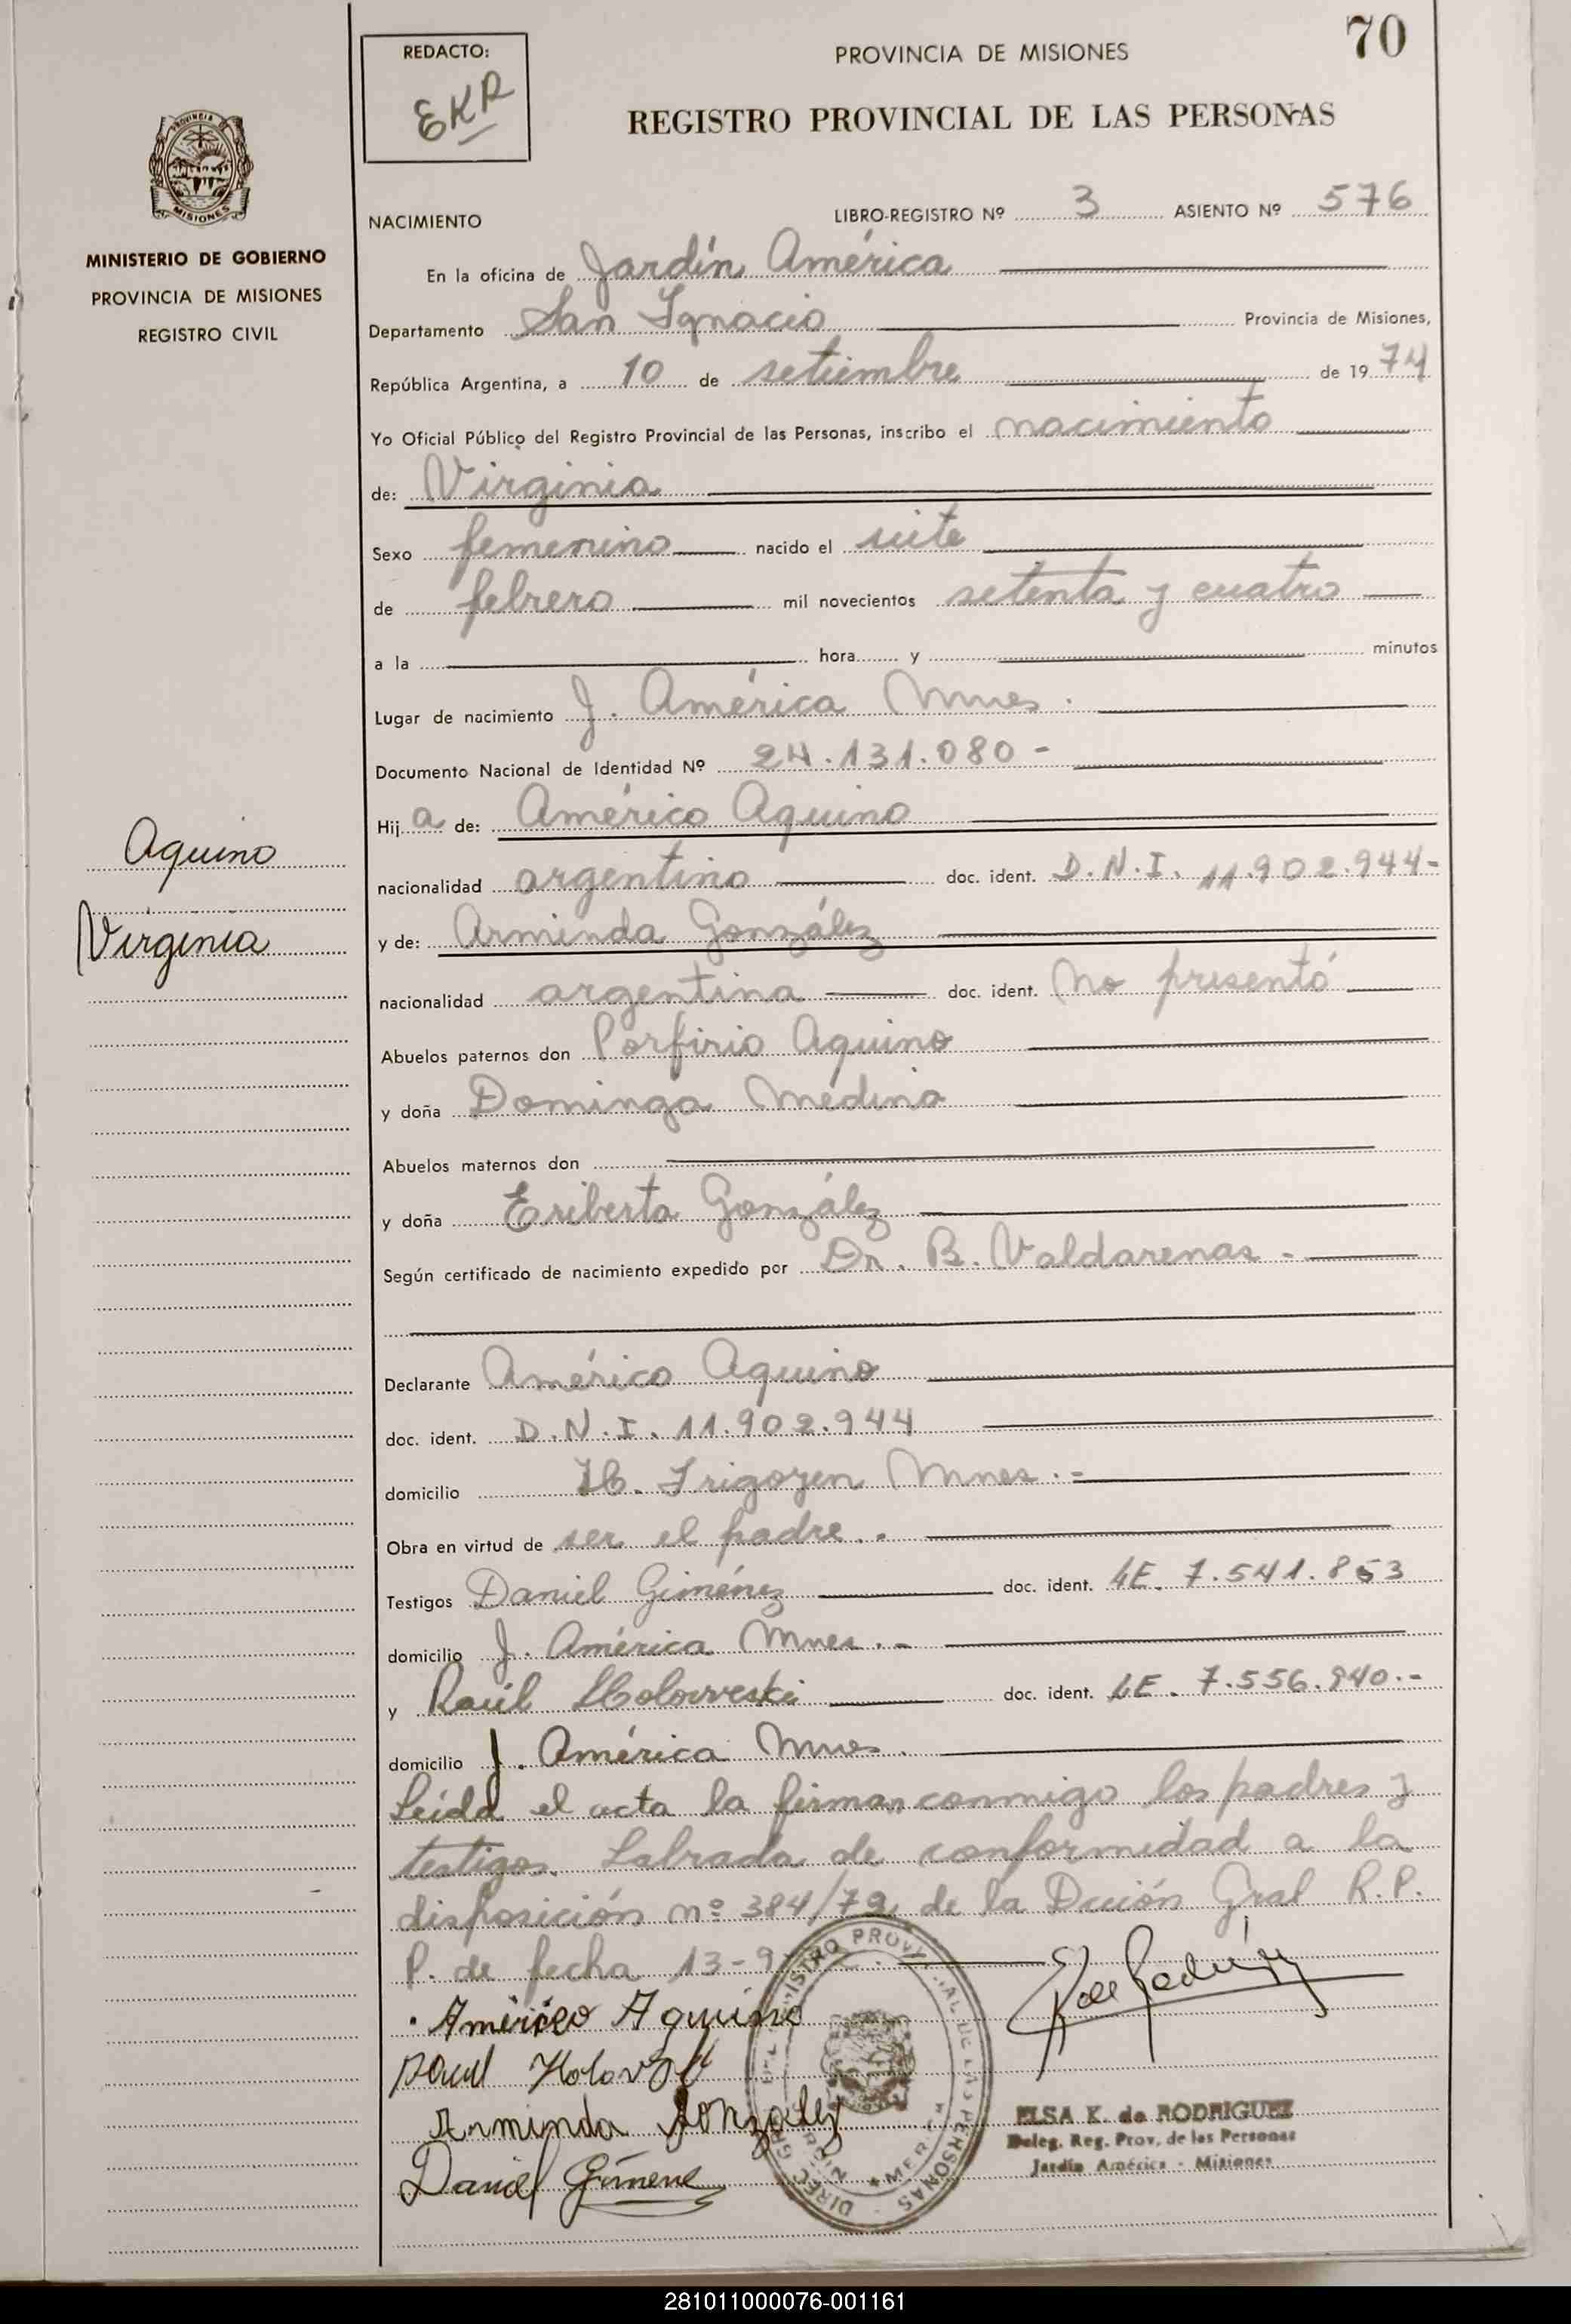 70
REDACTO:
EKR
PROVINCIA DE MISIONES
REGISTRO PROVINCIAL DE LAS PERSONAS
PROVINCIA DE
MISIONES
MINISTERIO DE GOBIERNO
PROVINCIA DE MISIONES
REGISTRO CIVIL
NACIMIENTO
LIBRO-REGISTRO Nº 3 ASIENTO Nº 576
En la oficina de Jardín América
Departamento San Ignacio Provincia de Misiones,
República Argentina, a 10 de setiembre de 1974
Yo Oficial Público del Registro Provincial de las Personas, inscribo el nacimiento
de: Virginia
Sexo femenino nacido el siete
de febrero mil novecientos setenta y cuatro
a la hora y minutos
Lugar de nacimiento J. América Mnes.
Documento Nacional de Identidad Nº 24.131.080 -
Aquino
Virginia
Hij a de: Américo Aquino
nacionalidad argentino doc. ident. D.N.I. 11.902.944-
y de: Arminda González
nacionalidad argentina doc. ident. No presentó
Abuelos paternos don Porfirio Aquino
y doña Dominga Medina
Abuelos maternos don
y doña Eriberta González
Según certificado de nacimiento expedido por Dr. B. Valdarenas -
Declarante Américo Aquino
doc. ident. D.N.I. 11.902.944
domicilio H. Irigoyen Mnes.-
Obra en virtud de ser el padre.
Testigos Daniel Giménez doc. ident. LE. 7.541.853
domicilio J. América Mnes.-
y Raúl Holoweski doc. ident. LE. 7.556.940.-
domicilio J. América Mnes.
Leída el acta la firman conmigo los padres y
testigos. Labrada de conformidad a la
disposición nº 384/72 de la Dción Gral R.P.
P. de fecha 13-9-
Américo Aquino
Raul
Arminda Gonzalez
Daniel Gimene
ELSA K. de RODRIGUEZ
Deleg. Reg. Prov. de las Personas
Jardín América - Misiones
281011000076-001161